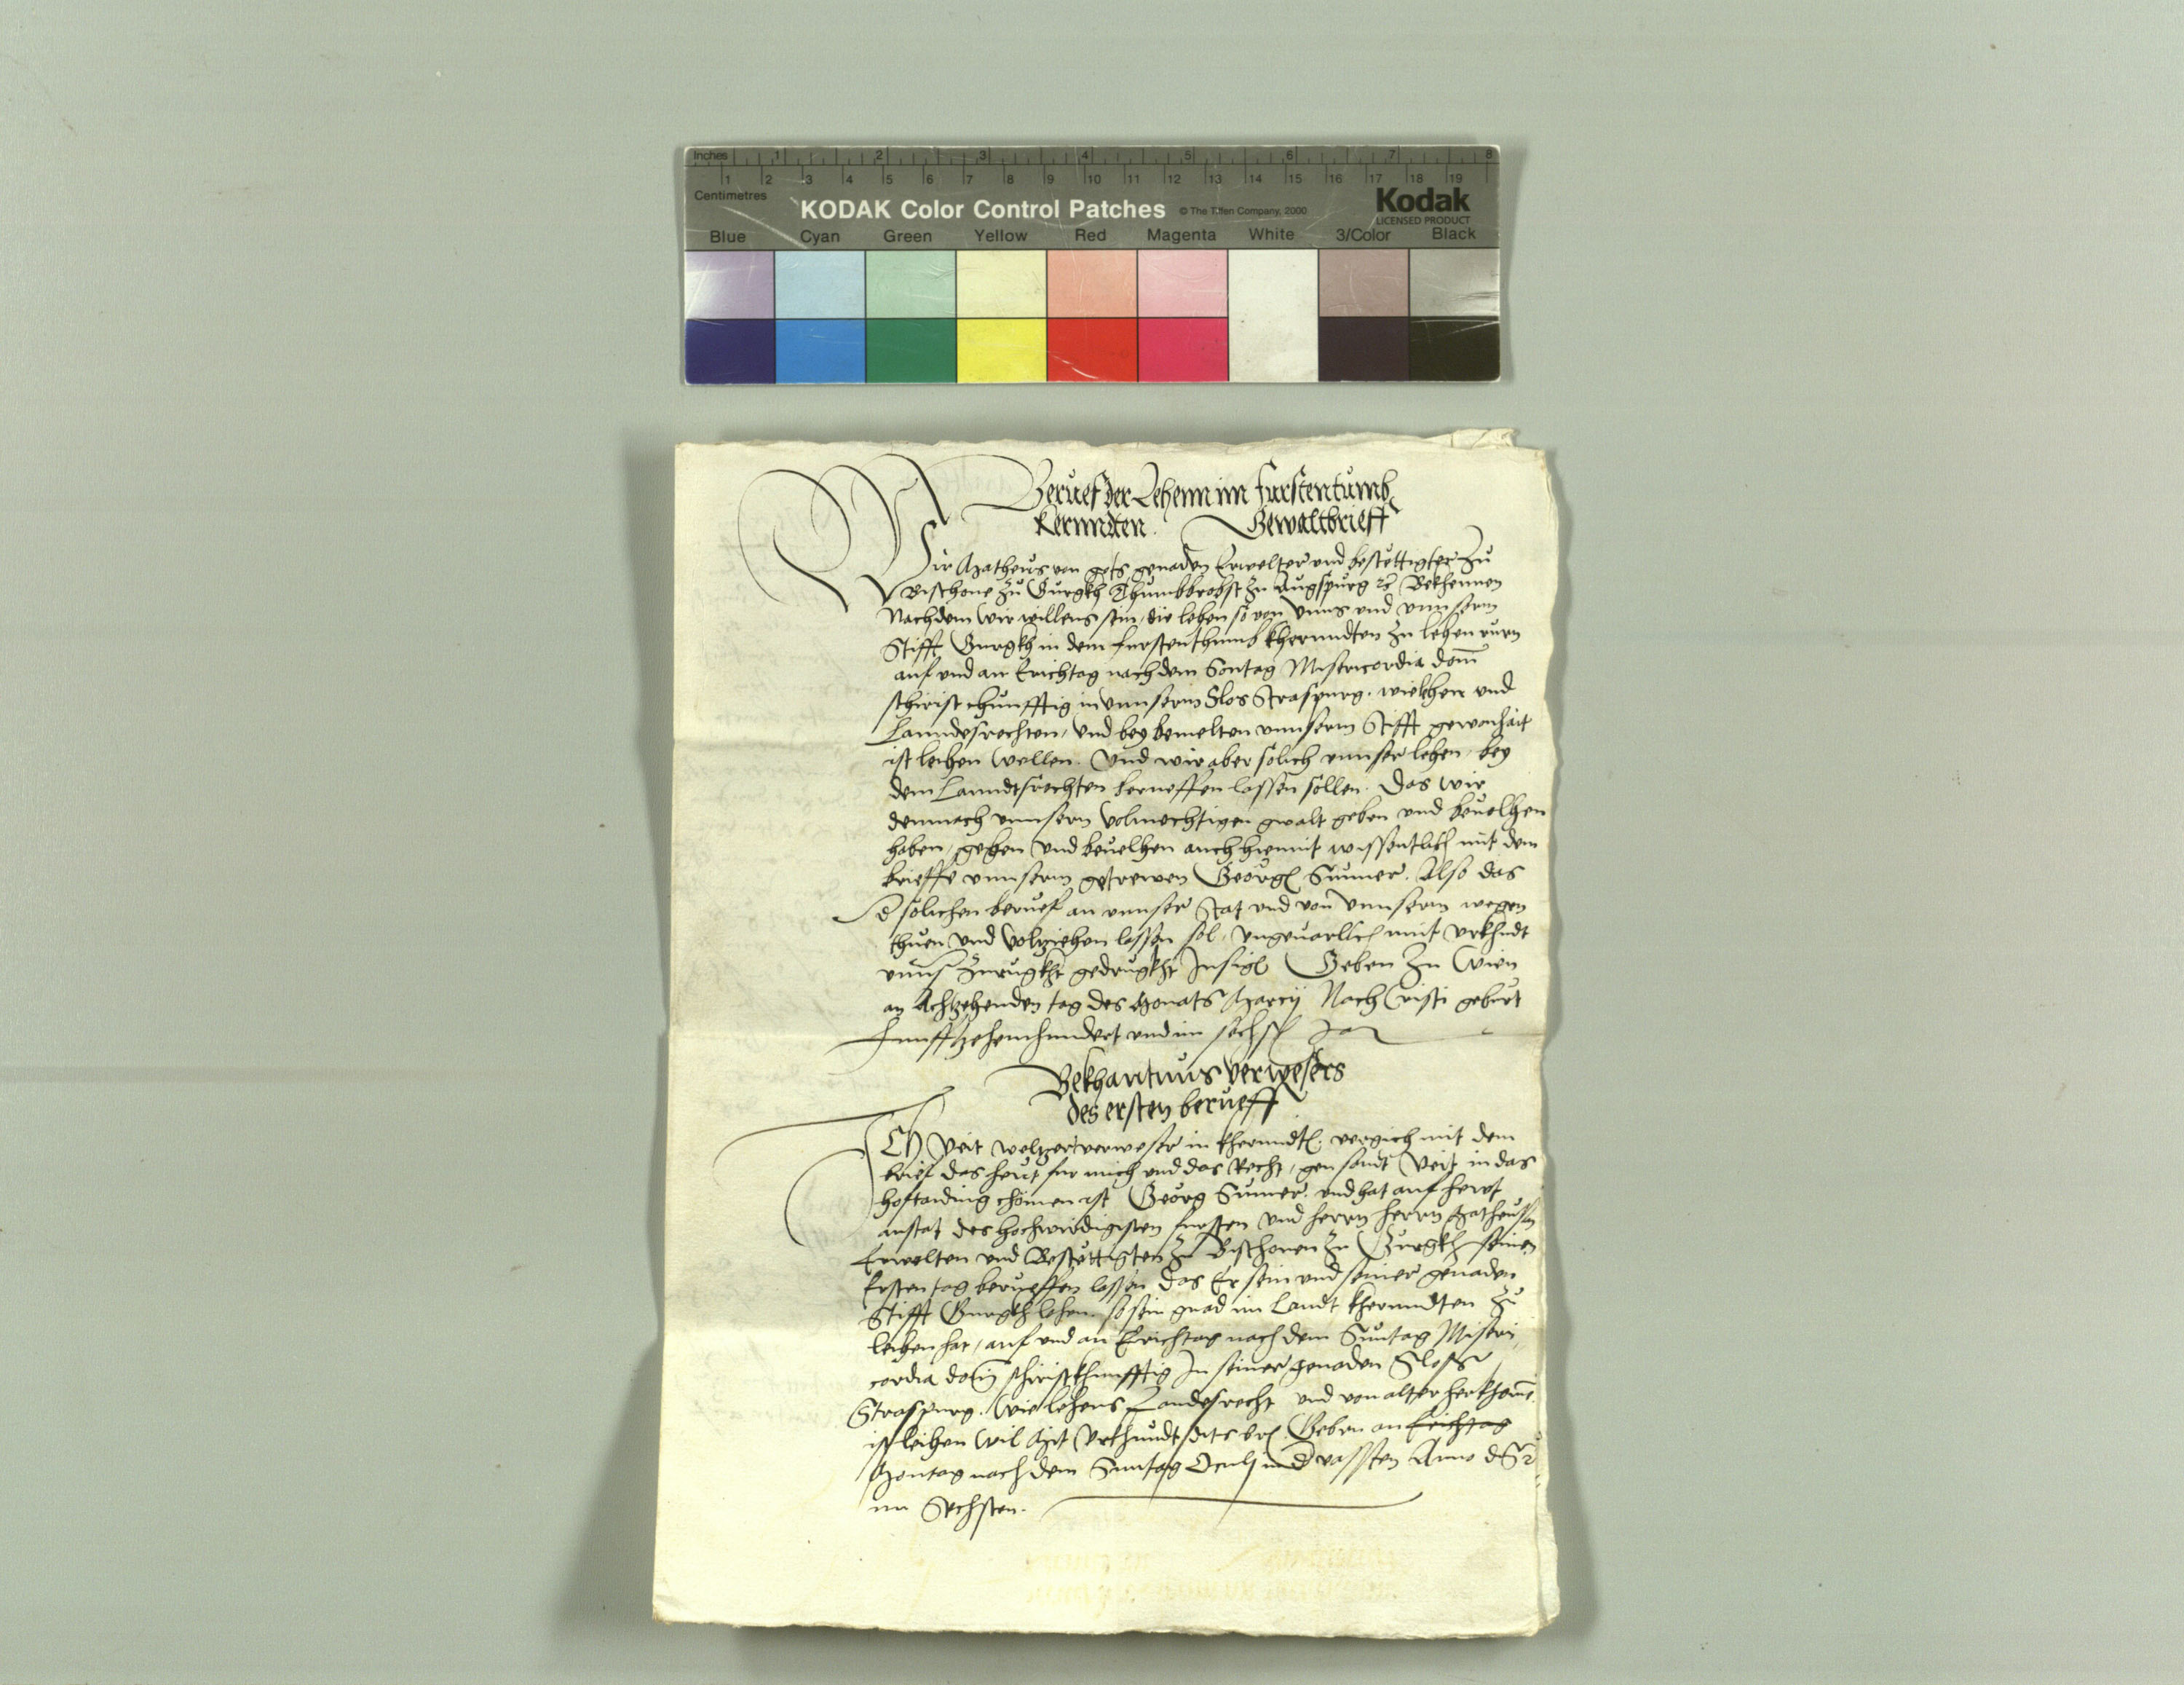 Inches 1 2 3 4 5 6 7 8
1 2 3 4 5 6 7 8 9 10 11 12 13 14 15 16 17 18 19
Centimetres
KODAK Color Control Patches © The Tiffen Company, 2000 Kodak
LICENSED PRODUCT
Blue Cyan Green Yellow Red Magenta White 3/Color Black
Beruef der Lehenn im Furstentumb
Kernndten. Gewaltbrieff
Wir Matheus von gots genaden Erwelter vnd bestettigter zu
Bischove zu Gurgkh Thumbbrobst zu Augspurg rc Bekhennen
Nachdem wir willens sein, die lehen so von vnns vnd vnnserm
Stifft Gurgkh in dem furstenthumb khernndten zu lehen rurn
auf vnd an Erichtag nach dem Sontag Misericordia dom̄
schirist khunfftig in vnnserm Slos Straspurg. wie lehen vnd
Lanndesrechten, vnd bey bemelten vnnserm Stifft gewonhait
ist leihen wellen. Vnd wir aber solich vnnser lehen, bey
dem Lanndsrechten berueffen lassen sollen. Das wir
demnach vnnsern volmechtigen gwalt geben vnd beuelhen
haben, geben vnd beuelhen auch hiemit wissentlich mit dem
brieffe vnnserm getrewen Georg Sumer. Also das
Er solichen beruef an vnnser stat vnd von vnnsern wegen
thuen vnd volziehen lassen sol, vngeuarlich mit vrkhundt
vnns zurugkh gedrugkht Insigl Geben zu Wien
an Achtzehenden tag des Monats Marcy Nach Cristi geburt
Funfftzehenhundert vnd im sechst Jar
Bekhantnus verwesers
des ersten berueff
ICh Veit welzer verweser in khernndt. vergich mit dem
brief das heut fur mich vnd das Recht, gen sandt Veit in das
hoftaiding chomen ist Georg Sumer. vnd hat auf hewt
anstat des hochwirdigisten fursten vnd herrn herrn Matheusen
Erwelten vnd Bestettigten zu Bischoven zu Gurgkh seinen
Ersten tag berueffen lassen das Er sein vnd seiner genaden
Stifft Gurgkh lehen so sein gnad im Landt khernndten zu
leihen hat, auf vnd an Erichtag nach dem Suntag Miseri
cordia dom̄ schiristkhunfftig In seiner genaden Sloss
Straspurg. Wie lehens Landesrecht vnd von alter herkhome
ist leihen wil Mit Vrkhundt dits br. Geben an Erichtag
Montag nach dem Suntag Oculj in d vassten Anno d
im Sechsten.